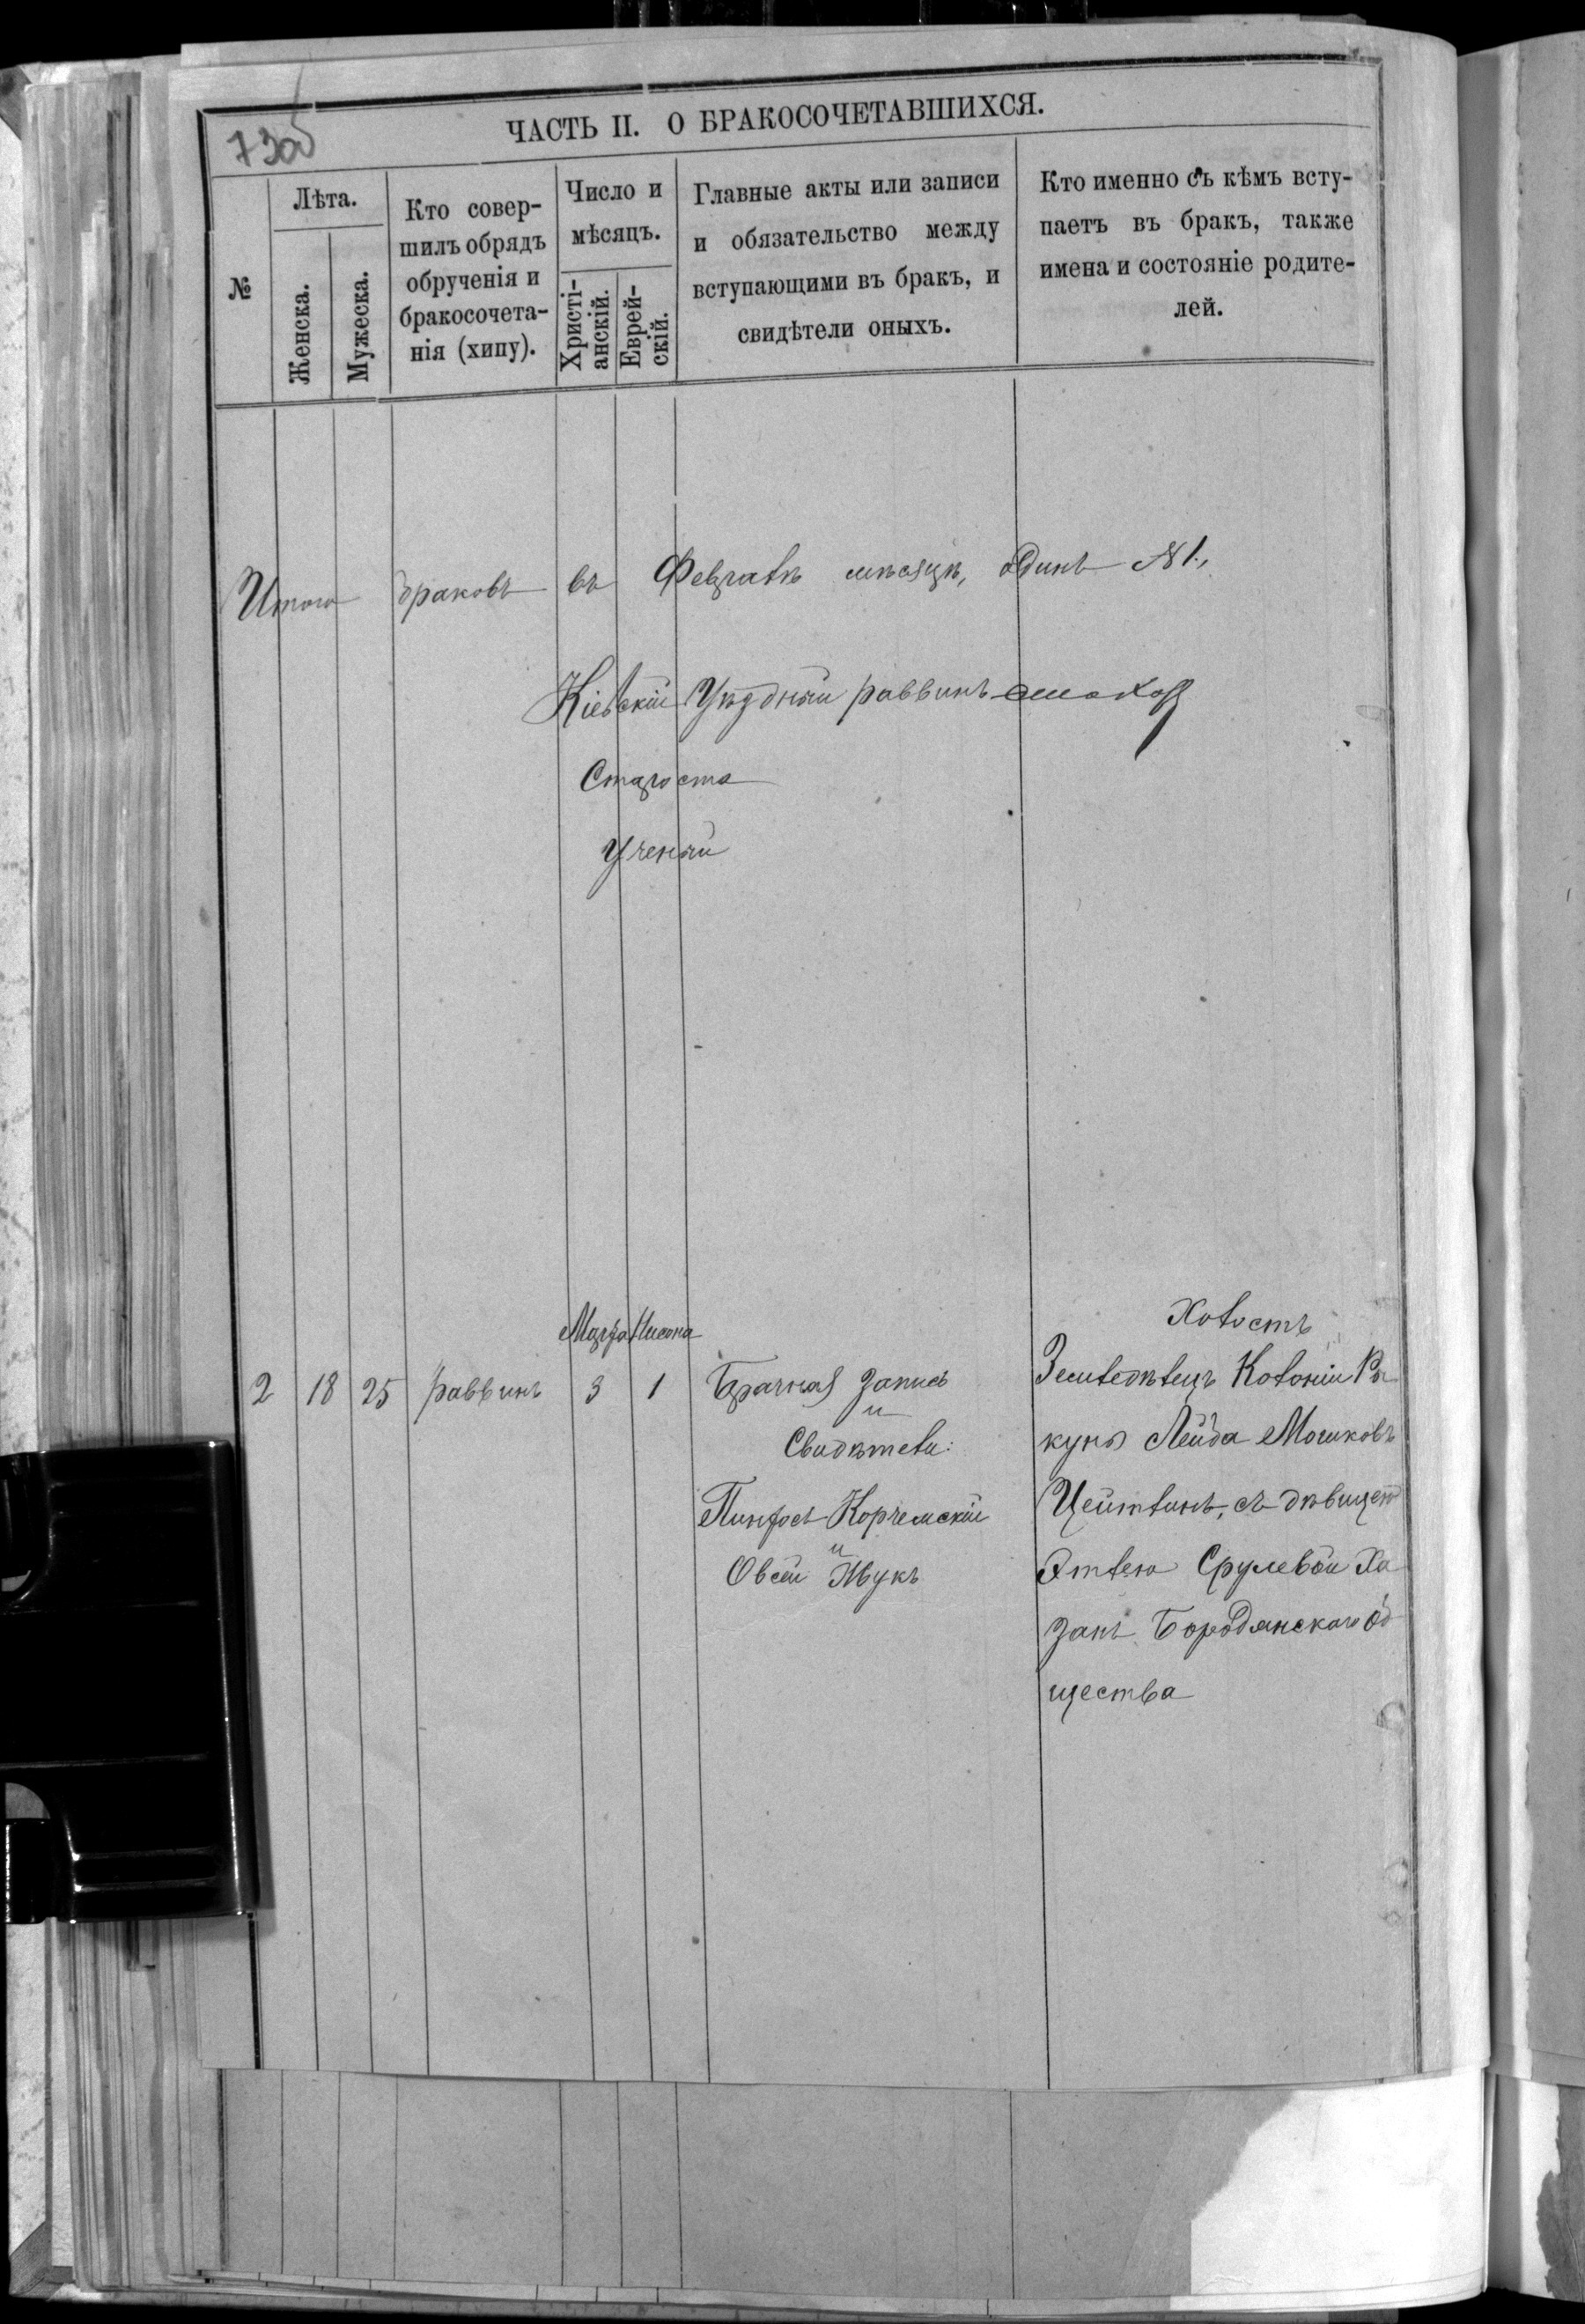 730б
ЧАСТЬ II. О БРАКОСОЧЕТАВШИХСЯ.
№
Лѣта.
Женска.
Мужеска.
Кто совер-
шилъ обрядъ
обрученія и
бракосочета-
нія (хипу).
Число и
мѣсяцъ.
Христі-
анскій.
Еврей-
скій.
Главные акты или записи
и обязательство между
вступающими въ бракъ, и
свидѣтели оныхъ.
Кто именно съ кѣмъ всту-
паетъ въ бракъ, также
имена и состояніе родите-
лей.
Итого браковъ въ Февралѣ мѣсяцѣ, одинъ №1.,
Кіевскій Уѣздный раввинъ
Староста
Ученый
Марта Нисона
2 18 25 раввинъ 3 1
Брачная запись
и
Свидѣтели:
Пинхосъ Корчемскій
и
Овсей Жукъ
Холостъ
Земледѣлецъ Колоніи Ры-
куны Лейба Мошковъ
Цейтлинъ, съ дѣвицею
Этлею Срулевой Ха
занъ Бородянскаго Об
щества